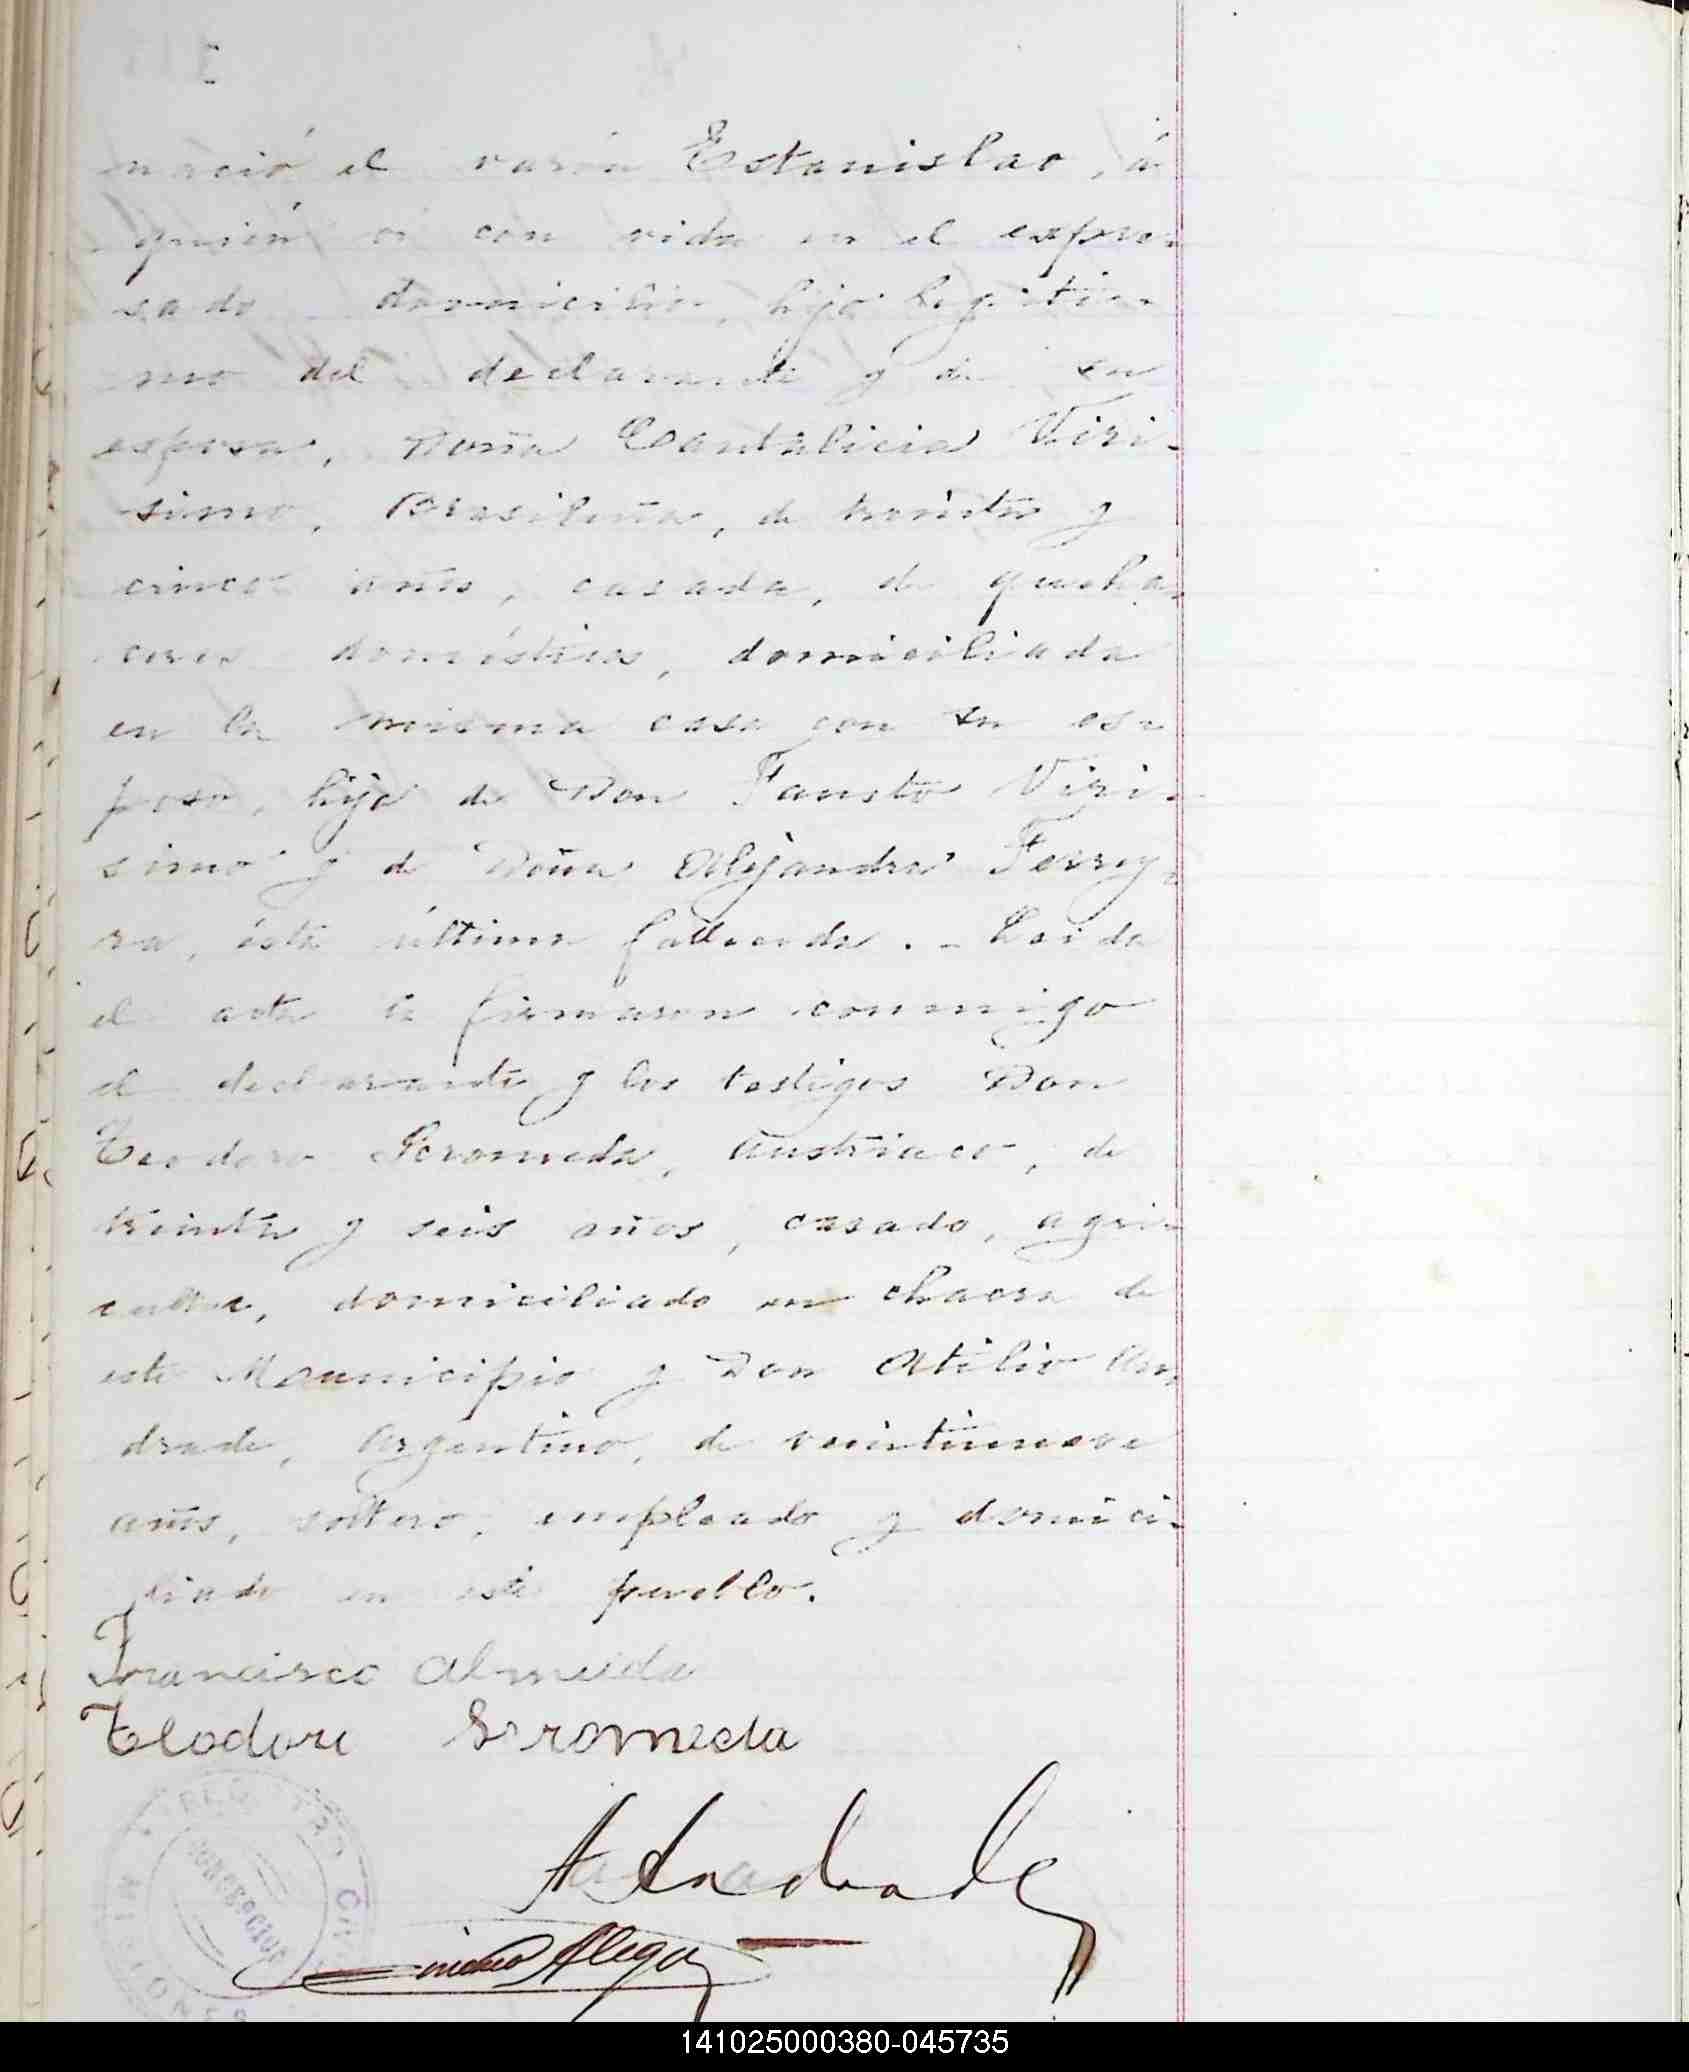 nació el varón Estanislao, á
quién vi con vida en el expre-
sado domicilio, hijo legíti-
mo del declarante y de su
esposa, Doña Cantalicia Viri-
simo, Brasileña, de treinta y
cinco años, casada, de queha-
ceres domésticos, domiciliada
en la misma casa con su es-
poso, hija de Don Fausto Viri-
simo y de Doña Alejandra Ferrey-
ra, ésta última fallecida. - Leida
el acta la firmaron conmigo
el declarante y los testigos Don
Teodoro Seromeda, Austriaco, de
treinta y seis años, casado, agri-
cultor, domiciliado en chacra de
este Municipio y Don Atilio An-
drade, Argentino, de veintinueve
años, soltero, empleado y domici-
liado en este pueblo.
Francisco Almeida
Teodoro Seromeda
A Andrade
Alega
REGISTRO CIVIL
MISIONES
141025000380-045735